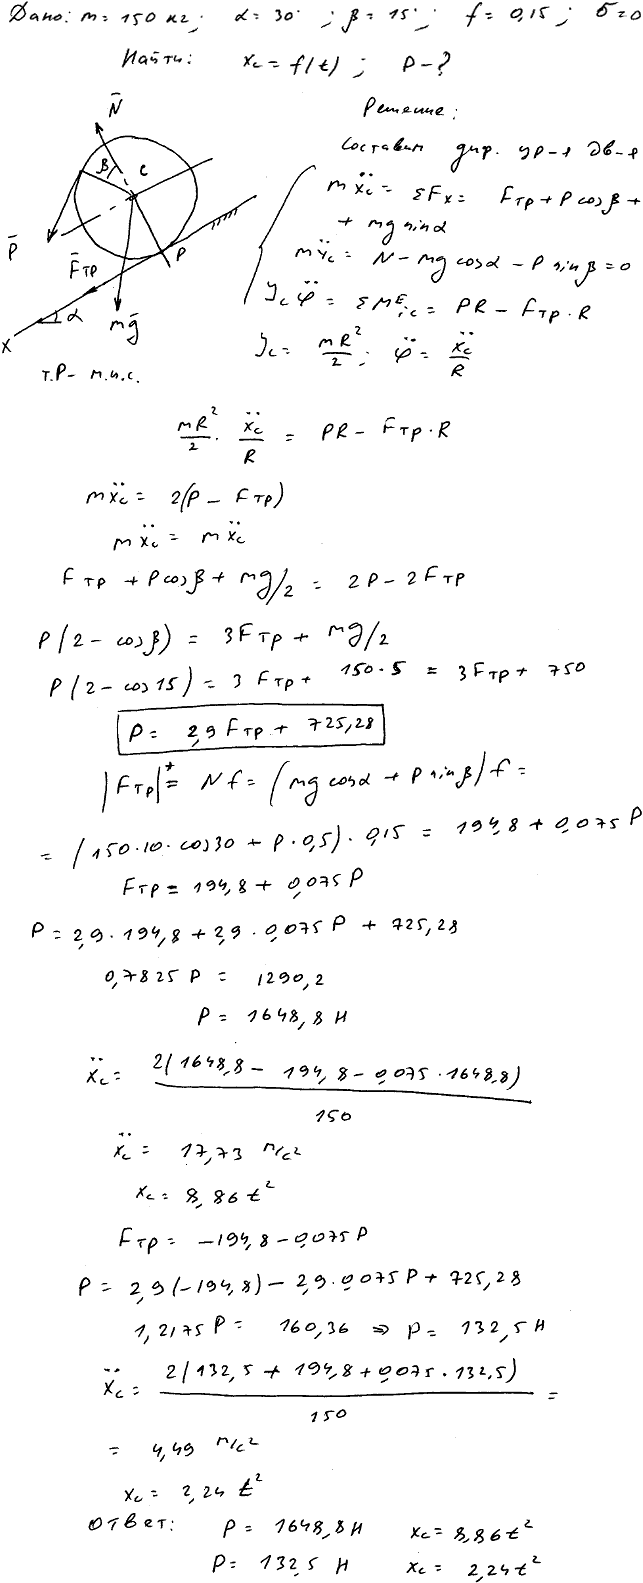 Дано: m = 150 кг; α = 30°; β = 15°; f = 0,15; δ = 0
Найти: x_c = f(t); P - ?
Решение:
составим диф. ур-я дв-я
mẍ_c = ΣF_x = F_тр + P cos β +
+ mg sin α
mÿ_c = N - mg cos α - P sin β = 0
J_c φ̈ = ΣM^E_ic = PR - F_тр · R
J_c = mR²/2; φ̈ = ẍ_c/R
N̄
β
C
P̄
F̄_тр
P
α
mḡ
X
т.P - м.ц.с.
mR²/2 · ẍ_c/R = PR - F_тр · R
mẍ_c = 2(P - F_тр)
mẍ_c = mẍ_c
F_тр + P cos β + mg/2 = 2P - 2F_тр
P(2 - cos β) = 3F_тр + mg/2
P(2 - cos 15) = 3 F_тр + 150·5 = 3F_тр + 750
P = 2,9 F_тр + 725,28
|F_тр|^+ = Nf = (mg cos α + P sin β) f =
= (150·10·cos 30 + P·0,5)·0,15 = 194,8 + 0,075 P
F_тр = 194,8 + 0,075 P
P = 2,9·194,8 + 2,9·0,075 P + 725,28
0,7825 P = 1290,2
P = 1648,8 Н
ẍ_c = 2(1648,8 - 194,8 - 0,075·1648,8)/150
ẍ_c = 17,73 м/с²
x_c = 8,86 t²
F_тр = -194,8 - 0,075 P
P = 2,9(-194,8) - 2,9·0,075 P + 725,28
1,2175 P = 160,36 ⇒ P = 132,5 Н
ẍ_c = 2(132,5 + 194,8 + 0,075·132,5)/150 =
= 4,49 м/с²
x_c = 2,24 t²
Ответ: P = 1648,8 Н x_c = 8,86 t²
P = 132,5 Н x_c = 2,24 t²